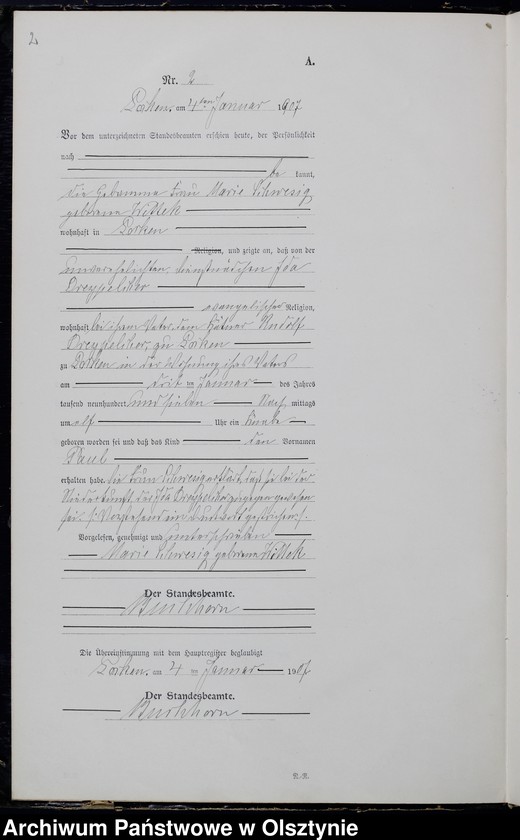 2
A.
Nr. 2
am 4ten Januar 1907
Vor dem unterzeichneten Standesbeamten erschien heute, der Persönlichkeit
nach
be kannt,
die Hebamme Frau Marie Schwesig
geborene Wittek
wohnhaft in
Religion, und zeigte an, daß von der
unverehelichten Dienstmädchen Ida
evangelischer Religion,
wohnhaft bei ihrem Vater, dem Kätner Rudolf
zu
zu in der Wohnung ihres Vaters
am drit ten Januar des Jahres
tausend neunhundert und sieben Nach mittags
um elf Uhr ein Knabe
geboren worden sei und daß das Kind den Vornamen
Paul
erhalten habe. Die Frau Schwesig erklärt, daß sie bei der
Niederkunft der Ida zugegen gewesen
sei. Vorstehend ein Druckwort gestrichen.
Vorgelesen, genehmigt und unterschrieben
Marie Schwesig geborene Wittek
Der Standesbeamte.
Burkhorn
Die Übereinstimmung mit dem Hauptregister beglaubigt
am 4 ten Januar 1907
Der Standesbeamte.
Burkhorn
Archiwum Państwowe w Olsztynie